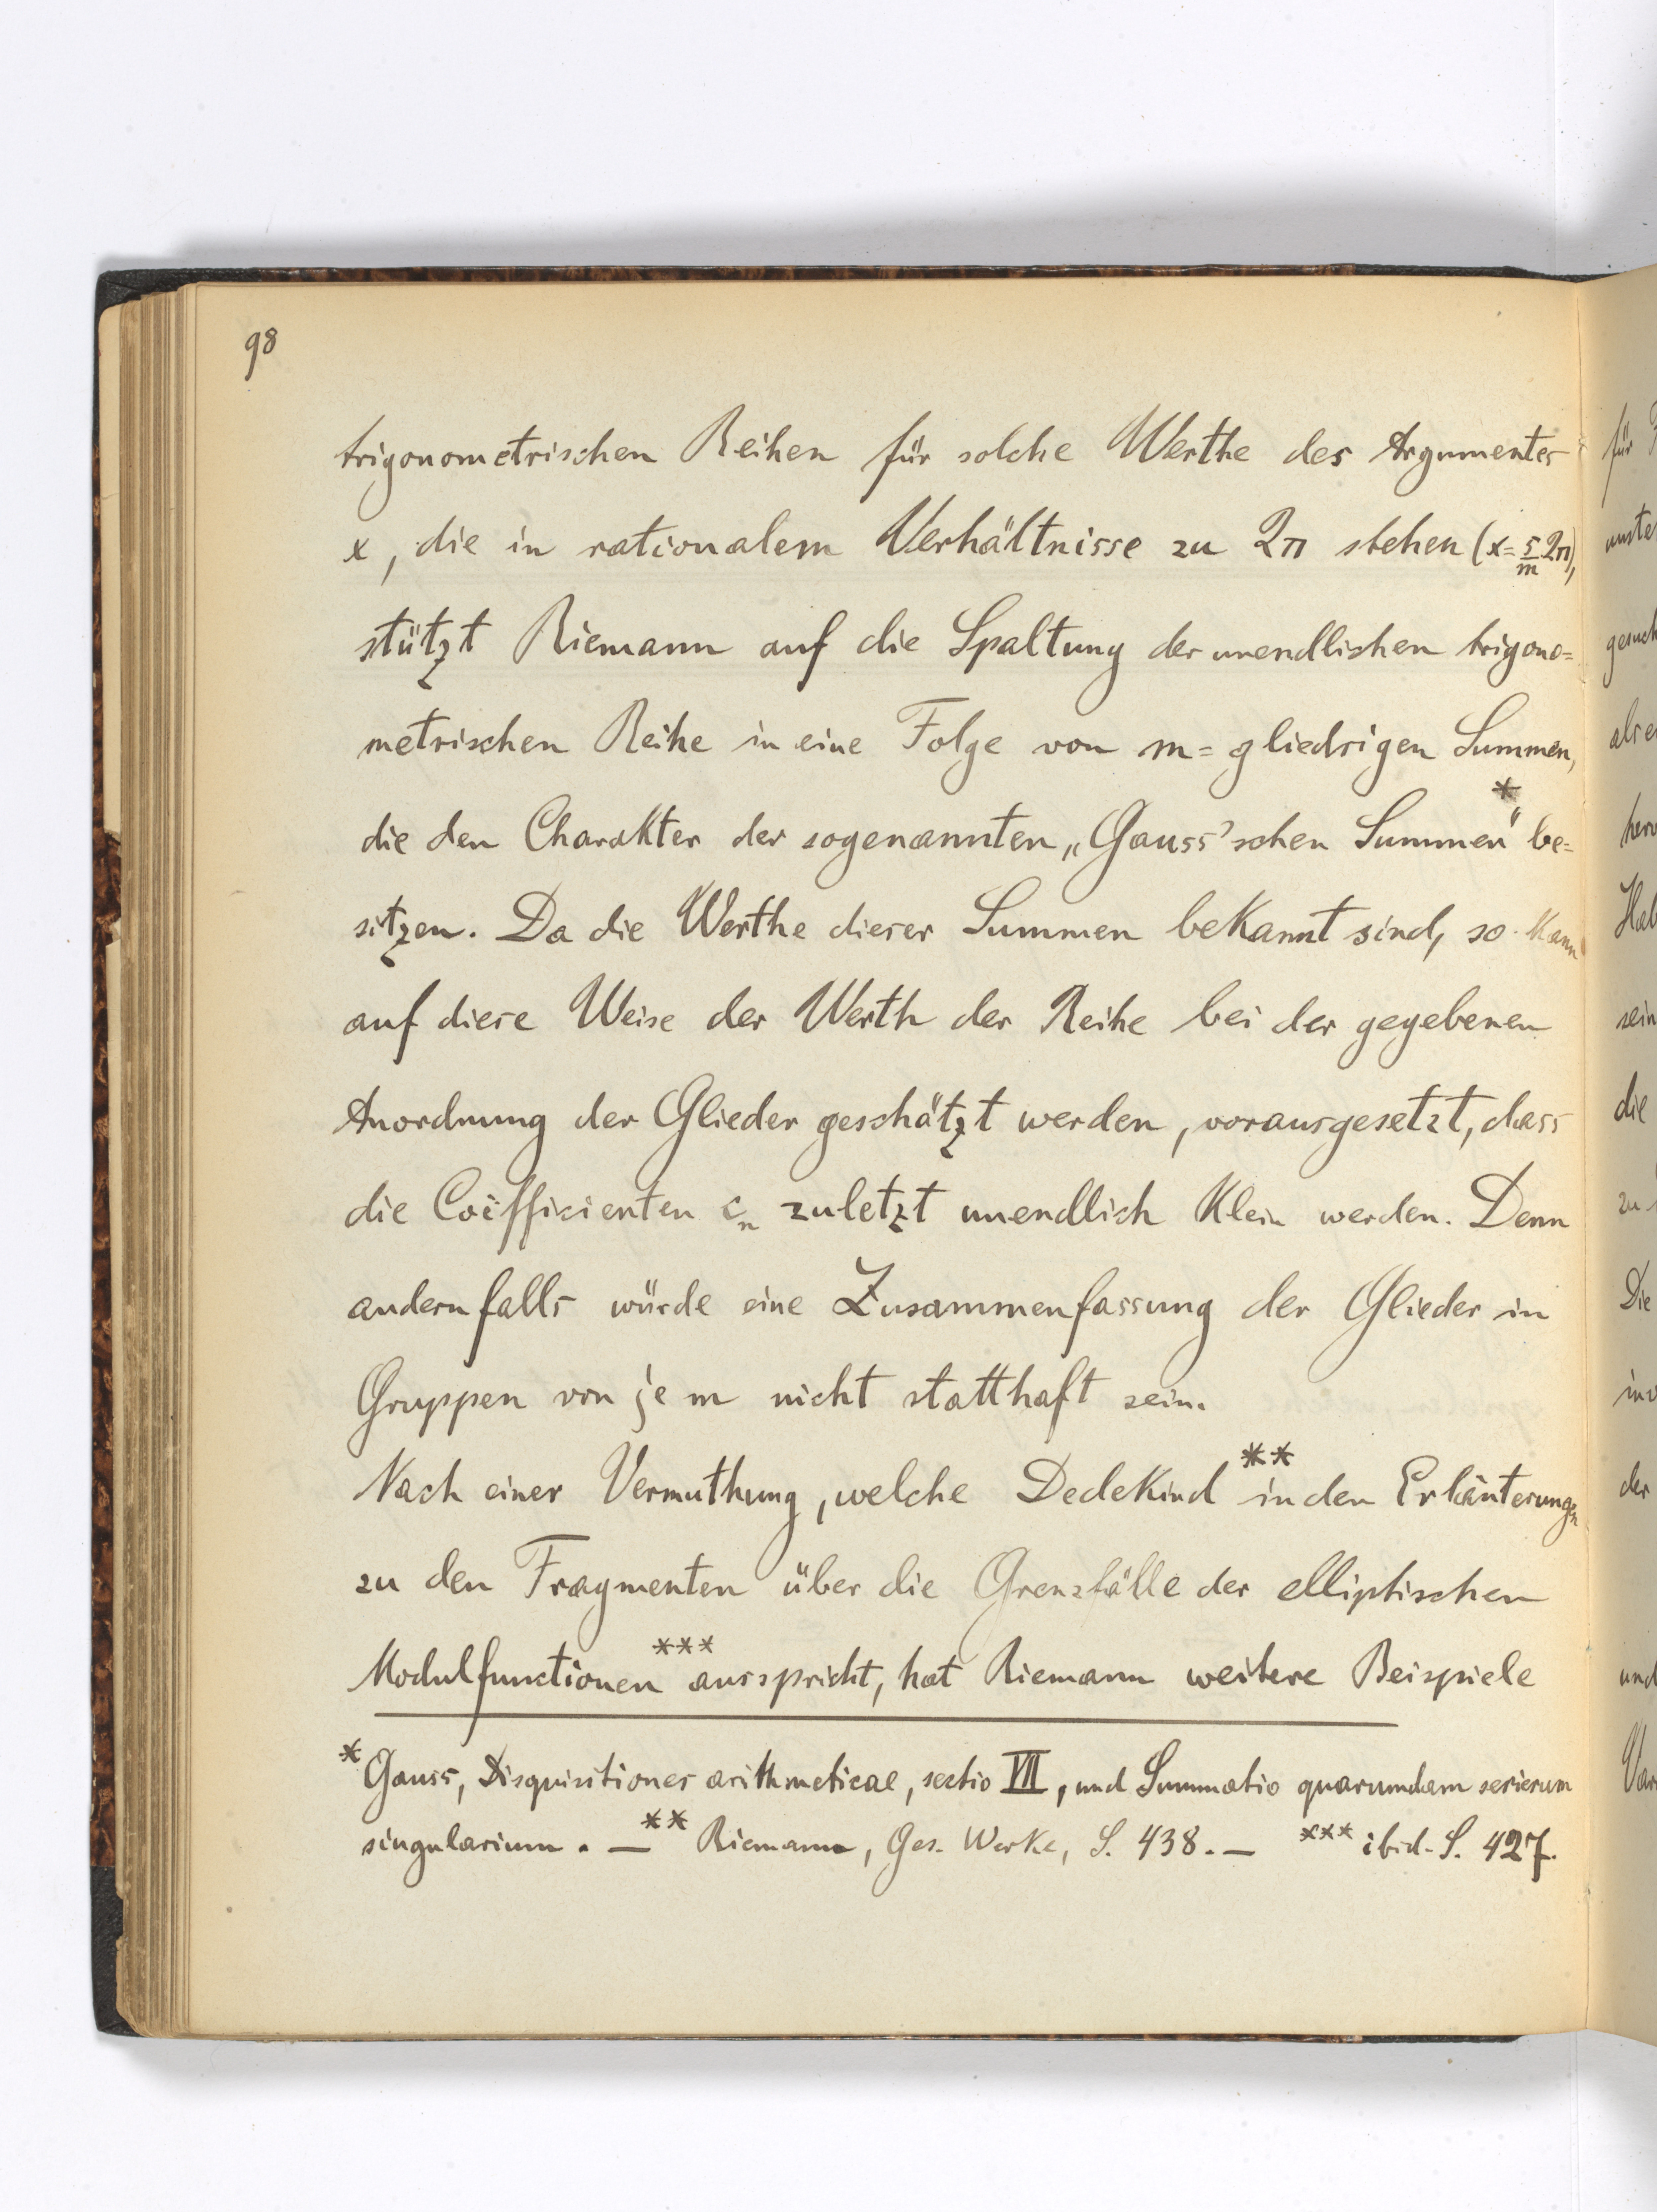 98
trigonometrischen Reihen für solche Werthe des Argumentes
x, die in rationalem Verhältnisse zu 2π stehen (x = s/m 2π),
stützt Riemann auf die Spaltung der unendlichen trigono=
metrischen Reihe in eine Folge von m=gliedrigen Summen,
die den Charakter der sogenannten „Gauss'schen Summen*“ be=
sitzen. Da die Werthe dieser Summen bekannt sind, so kann
auf diese Weise der Werth der Reihe bei der gegebenen
Anordnung der Glieder geschätzt werden, vorausgesetzt, dass
die Coëffizienten cn zuletzt unendlich klein werden. Denn
andernfalls würde eine Zusammenfassung der Glieder in
Gruppen von je m nicht statthaft sein.
Nach einer Vermuthung, welche Dedekind** in den Erläuterungen
zu den Fragmenten über die Grenzfälle der elliptischen
Modulfunctionen*** ausspricht, hat Riemann weitere Beispiele
* Gauss, Disquisitiones arithmeticae, sectio VII, und Summatio quarumdam serierum
singularium. — ** Riemann, Ges. Werke, S. 438. — *** ibid. S. 427.
für
gesuch
die
zu
Die
der
und